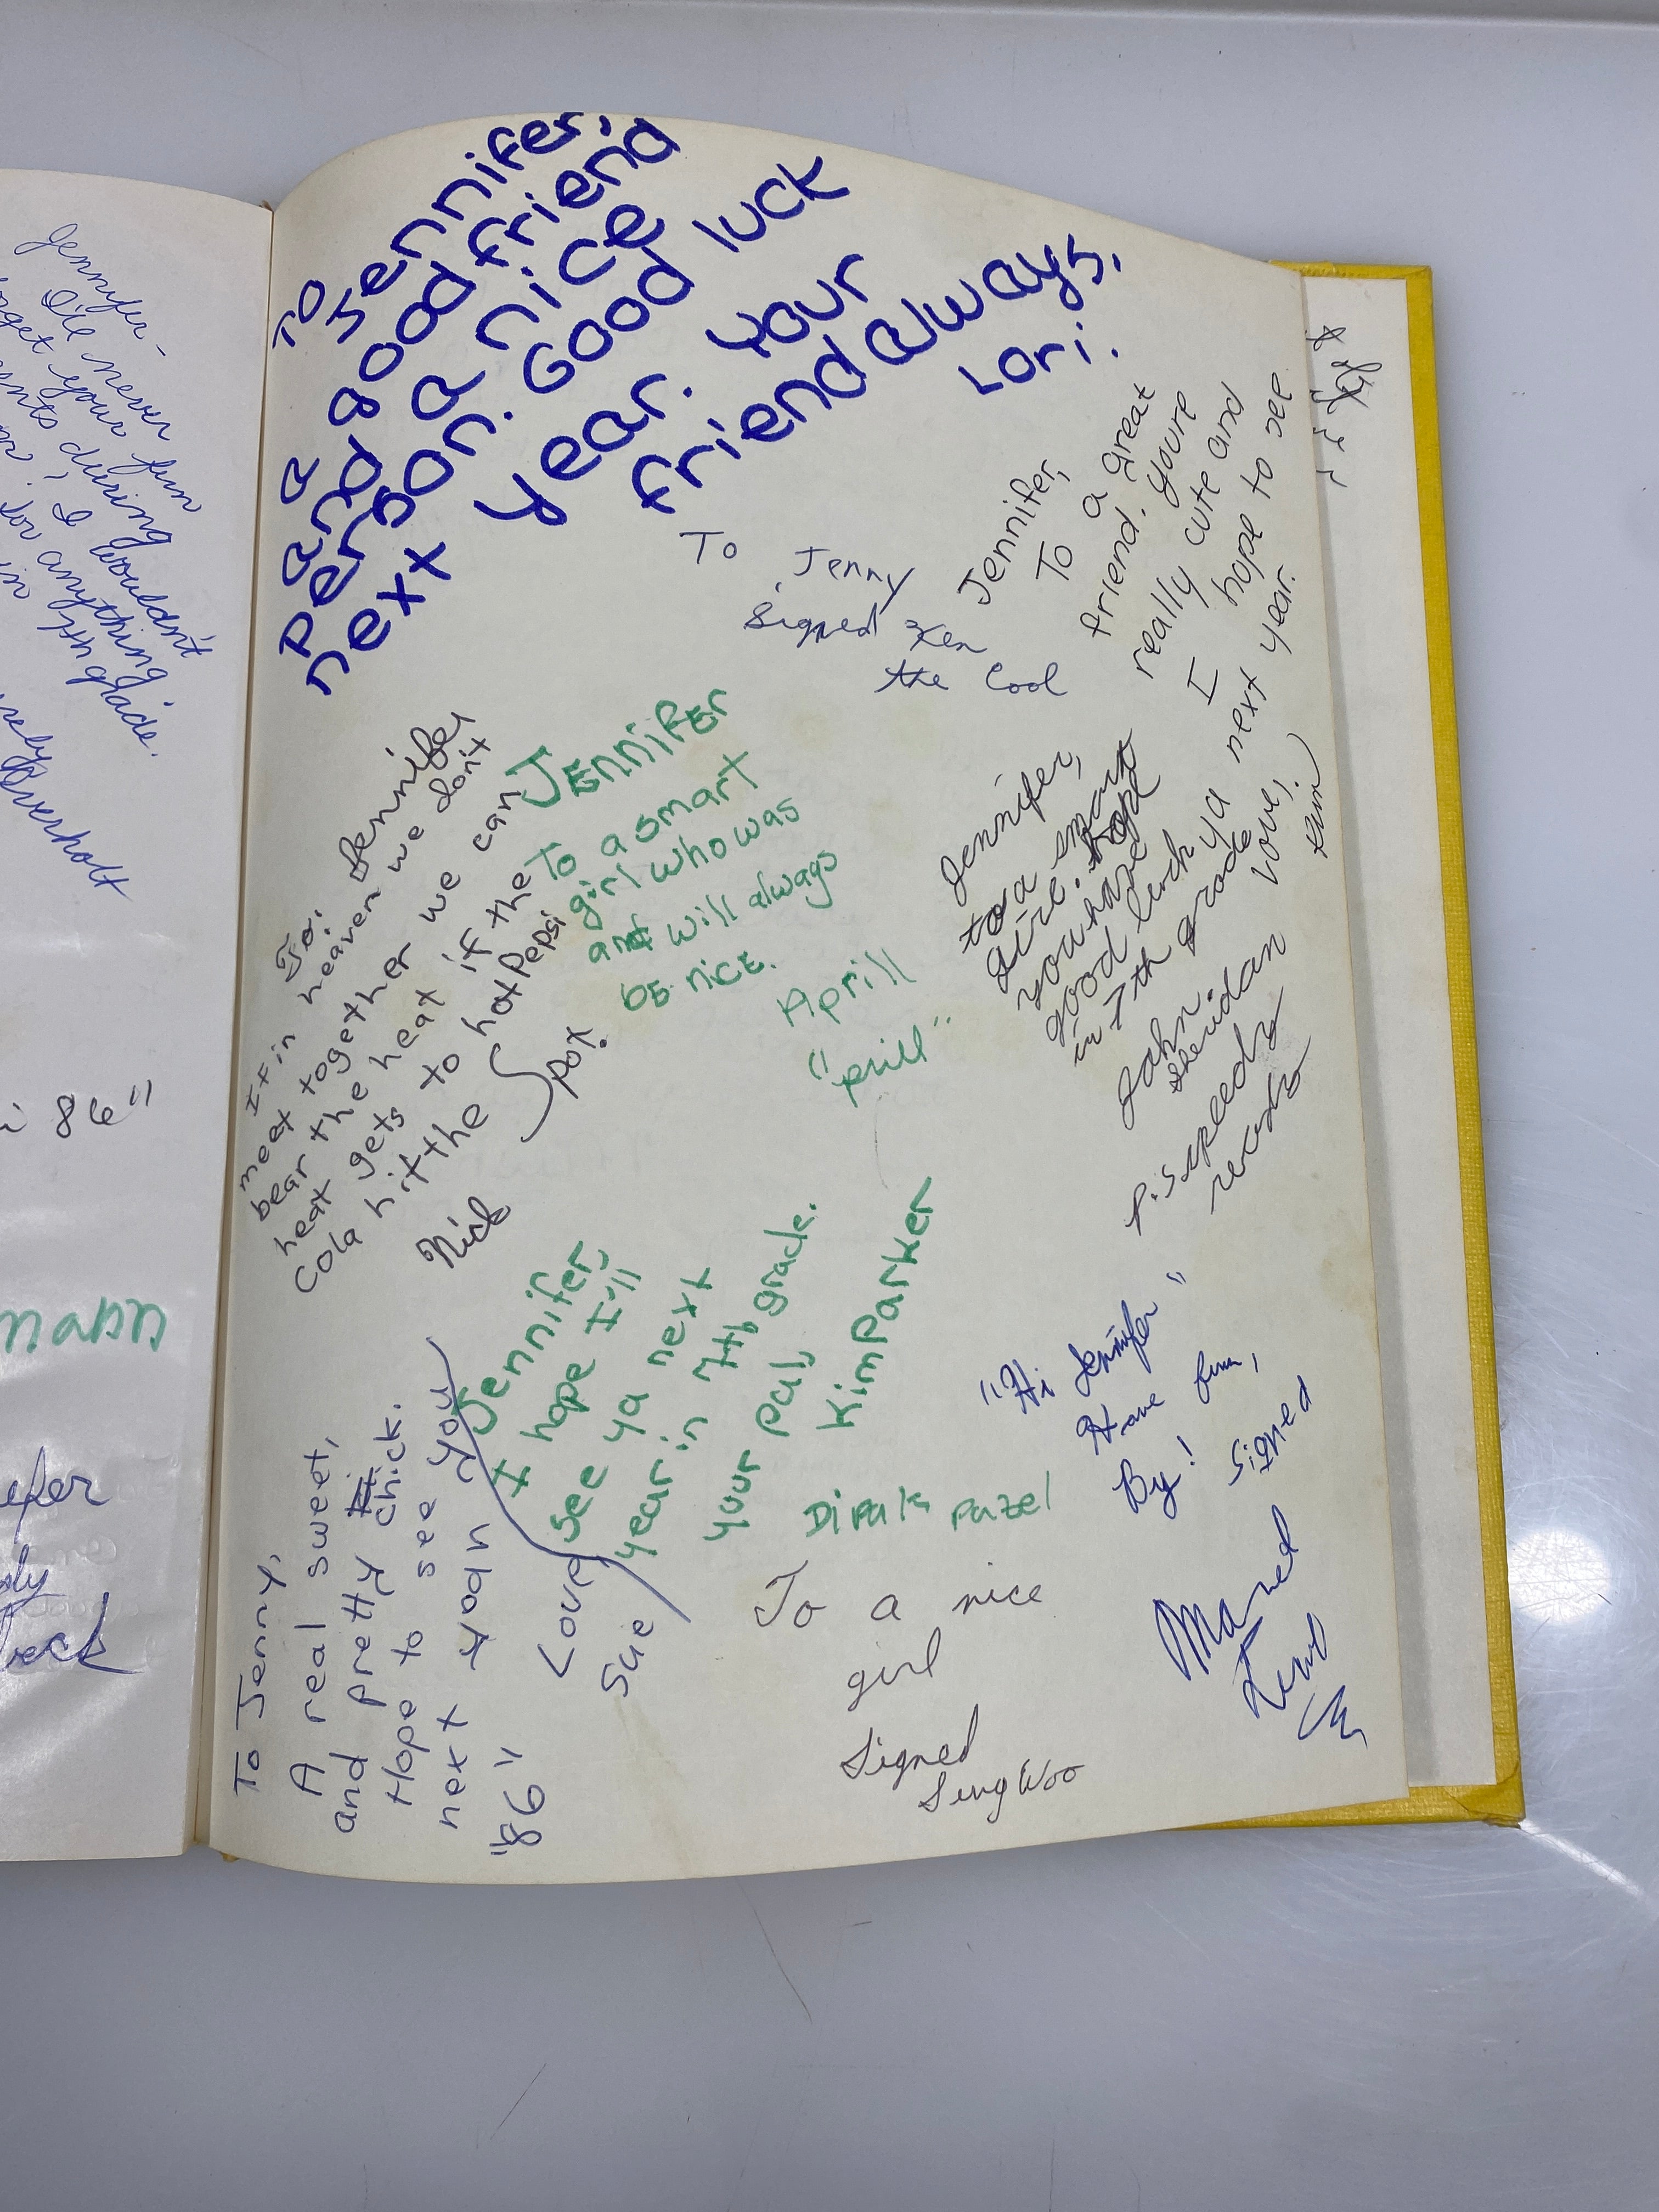 Jennyfer-
I'll never
forget your fun
during
I wouldn't
for anything
in 7th grade.
Overholt
86"
mann
TO Jennifer,
a good friend
and a nice
person. Good luck
next year. Your
friend always,
Lori.
To Jenny
Signed Ken
the Cool
Jennifer,
To a great
friend. Youre
really cute and
I hope to see
ya next year.
Love,
Kim
To: Jennifer
If in heaven we don't
meet together we can
bear the heat if the
heat gets to hot Pepsi
Cola hit the
Spot.
Nick
JENNiFER
To a smart
girl who was
and will always
be nice.
Aprill
"prill"
Jennifer,
to a smart
girl. hope
you have
good luck
in 7th grade
John.
Sheridan
P.S speedy
Jennifer,
I hope I'll
see ya next
year in 7th grade.
your pal,
Kim Parker
"Hi Jennifer"
Have fun,
By!
signed
To Jenny,
A real sweet,
and pretty chick.
Hope to see you
next year
"86"
Love
Sue
Dipak Patel
To a nice
girl
Signed
Sung Woo